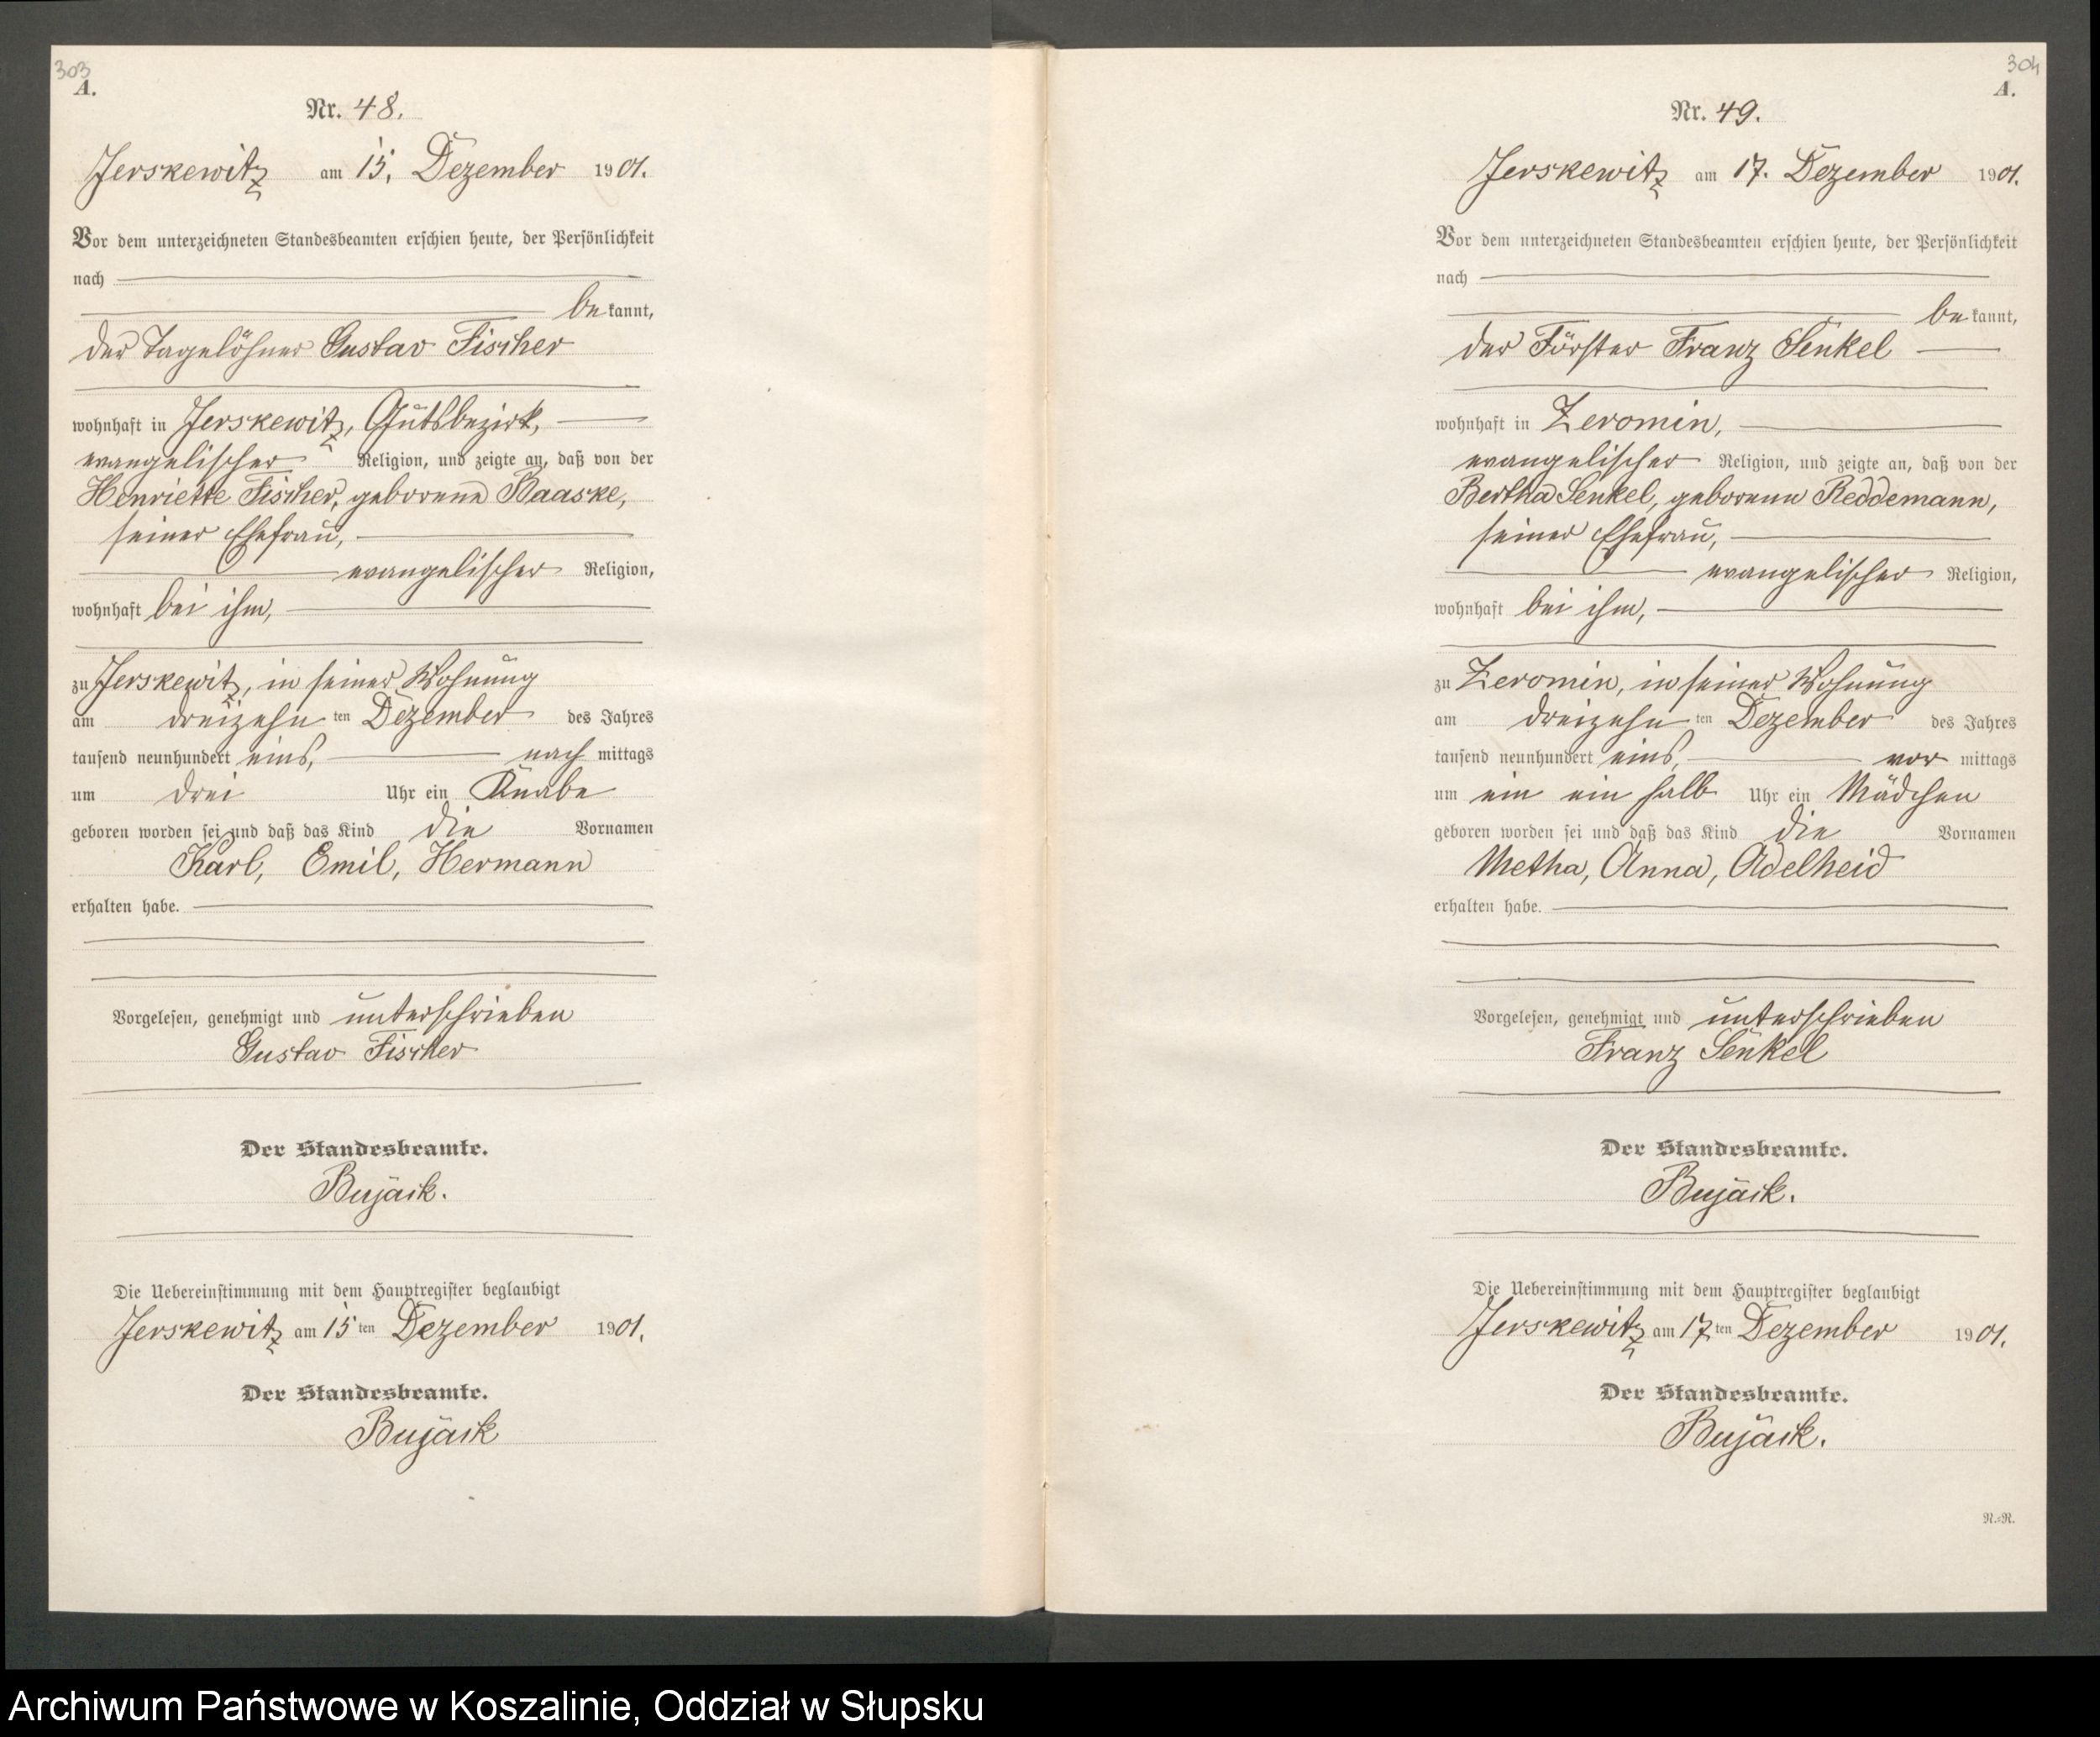 303
A.
Nr. 48.
Jerskewitz am 15. Dezember 1901.
Vor dem unterzeichneten Standesbeamten erschien heute, der Persönlichkeit
nach
be kannt,
der Tagelöhner Gustav Fischer
wohnhaft in Jerskewitz, Gutsbezirk,
evangelischer Religion, und zeigte an, daß von der
Henriette Fischer, geborene Baaske,
seiner Ehefrau,
evangelischer Religion,
wohnhaft bei ihm,
zu Jerskewitz, in seiner Wohnung
am dreizehn ten Dezember des Jahres
tausend neunhundert eins, nach mittags
um drei Uhr ein Knabe
geboren worden sei und daß das Kind die Vornamen
Karl, Emil, Hermann
erhalten habe.
Vorgelesen, genehmigt und unterschrieben
Gustav Fischer
Der Standesbeamte.
Bujack.
Die Uebereinstimmung mit dem Hauptregister beglaubigt
Jerskewitz am 15 ten Dezember 1901.
Der Standesbeamte.
Bujack
304
A.
Nr. 49.
Jerskewitz am 17. Dezember 1901.
Vor dem unterzeichneten Standesbeamten erschien heute, der Persönlichkeit
nach
be kannt,
der Förster Franz Senkel
wohnhaft in Zeromin,
evangelischer Religion, und zeigte an, daß von der
Bertha Senkel, geborene Reddemann,
seiner Ehefrau,
evangelischer Religion,
wohnhaft bei ihm,
zu Zeromin, in seiner Wohnung
am dreizehn ten Dezember des Jahres
tausend neunhundert eins, vor mittags
um ein ein halb Uhr ein Mädchen
geboren worden sei und daß das Kind die Vornamen
Metha, Anna, Adelheid
erhalten habe.
Vorgelesen, genehmigt und unterschrieben
Franz Senkel
Der Standesbeamte.
Bujack.
Die Uebereinstimmung mit dem Hauptregister beglaubigt
Jerskewitz am 17 ten Dezember 1901.
Der Standesbeamte.
Bujack.
N.=N.
Archiwum Państwowe w Koszalinie, Oddział w Słupsku